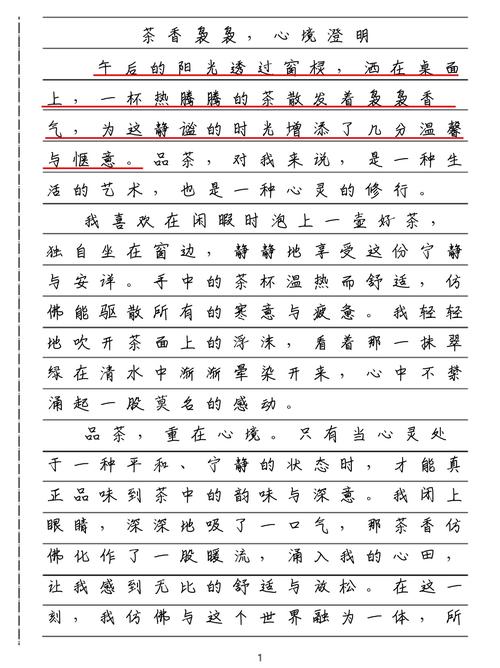 茶香袅袅，心境澄明
午后的阳光透过窗棂，洒在桌面
上，一杯热腾腾的茶散发着袅袅香
气，为这静谧的时光增添了几分温馨
与惬意。品茶，对我来说，是一种生
活的艺术，也是一种心灵的修行。
我喜欢在闲暇时泡上一壶好茶，
独自坐在窗边，静静地享受这份宁静
与安详。手中的茶杯温热而舒适，仿
佛能驱散所有的寒意与疲惫。我轻轻
地吹开茶面上的浮沫，看着那一抹翠
绿在清水中渐渐晕染开来，心中不禁
涌起一股莫名的感动。
品茶，重在心境。只有当心灵处
于一种平和、宁静的状态时，才能真
正品味到茶中的韵味与深意。我闭上
眼睛，深深地吸了一口气，那茶香仿
佛化作了一股暖流，涌入我的心田，
让我感到无比的舒适与放松。在这一
刻，我仿佛与这个世界融为一体，所
1